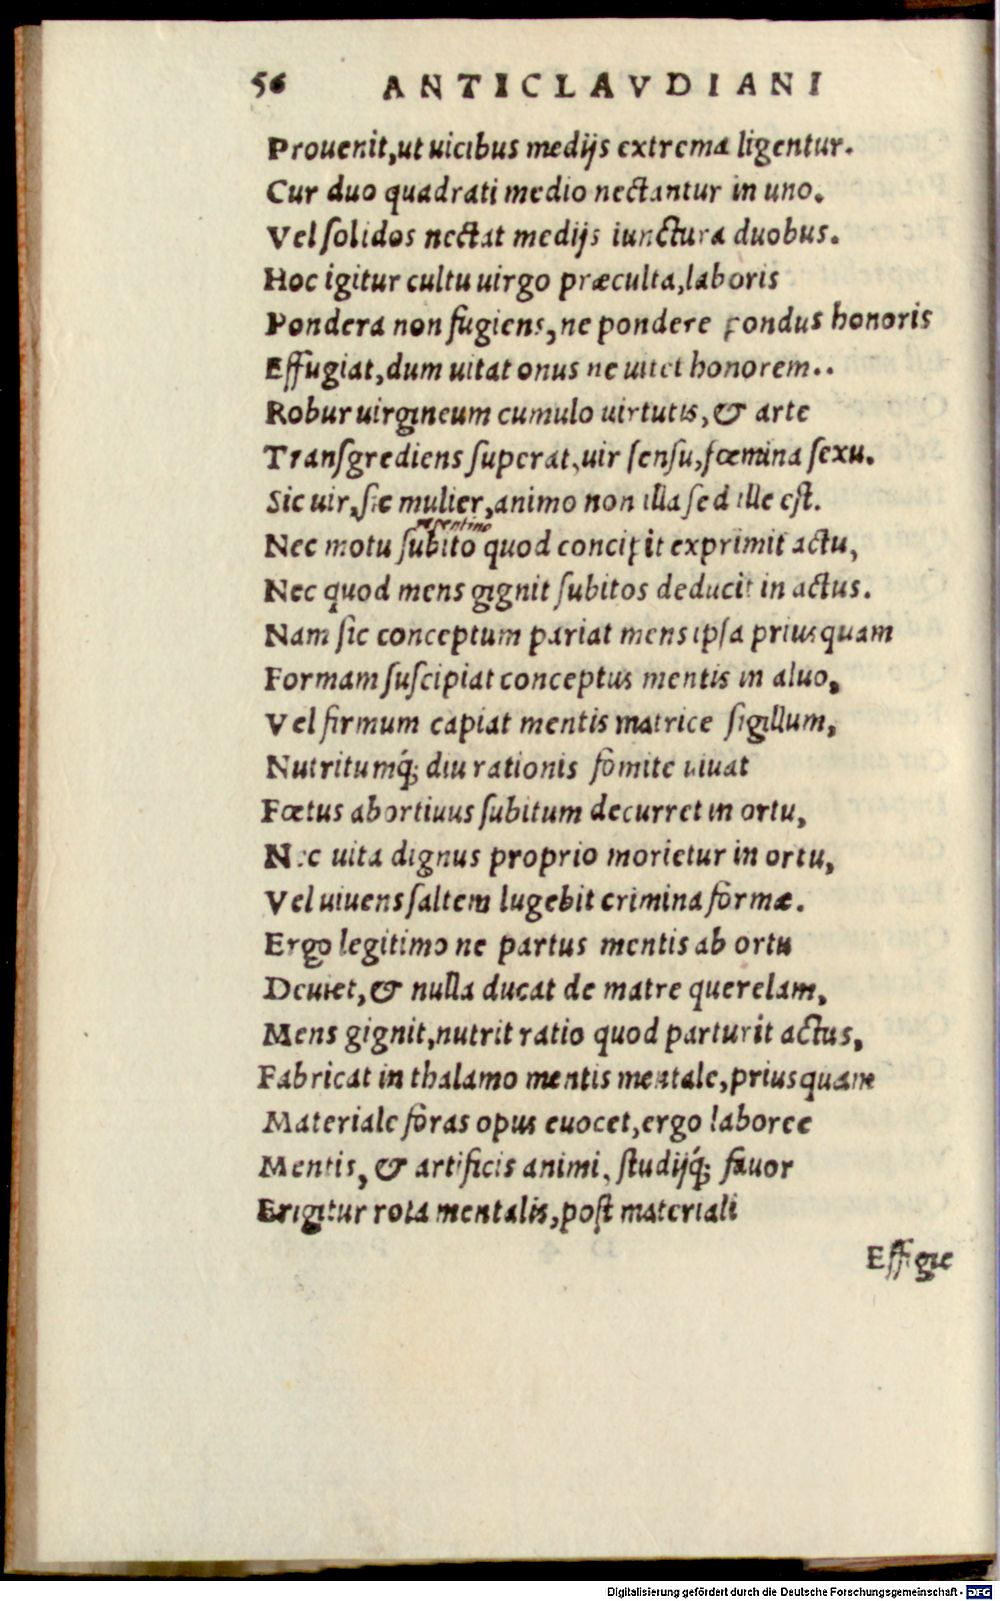 56 ANTICLAVDIANI
Prouenit,ut uicibus medijs extrema ligentur.
Cur duo quadrati medio nectantur in uno.
Vel ſolidos nectat medijs iunctura duobus.
Hoc igitur cultu uirgo præculta,laboris
Pondera non fugiens,ne pondere pondus honoris
Effugiat,dum uitat onus ne uitet honorem..
Robur uirgineum cumulo uirtutis,& arte
Tranſgrediens ſuperat,uir ſenſu,fœmina ſexu.
Sic uir,ſic mulier,animo non illa ſed ille eſt.
repentino
Nec motu ſubito quod concipit exprimit actu,
Nec quod mens gignit ſubitos deducit in actus.
Nam ſic conceptum pariat mens ipſa priusquam
Formam ſuſcipiat conceptus mentis in aluo,
Vel firmum capiat mentis matrice ſigillum,
Nutritumq́; diu rationis fomite uiuat
Fœtus abortiuus ſubitum decurret in ortu,
Nec uita dignus proprio morietur in ortu,
Vel uiuens ſaltem lugebit crimina formæ.
Ergo legitimo ne partus mentis ab ortu
Deuiet,& nulla ducat de matre querelam,
Mens gignit,nutrit ratio quod parturit actus,
Fabricat in thalamo mentis mentale,priusquam
Materiale foras opus euocet,ergo labore
Mentis, & artificis animi, ſtudijq́; fauor
Erigitur rota mentalis,poſt materiali
Effigie
Digitalisierung gefördert durch die Deutsche Forschungsgemeinschaft - DFG